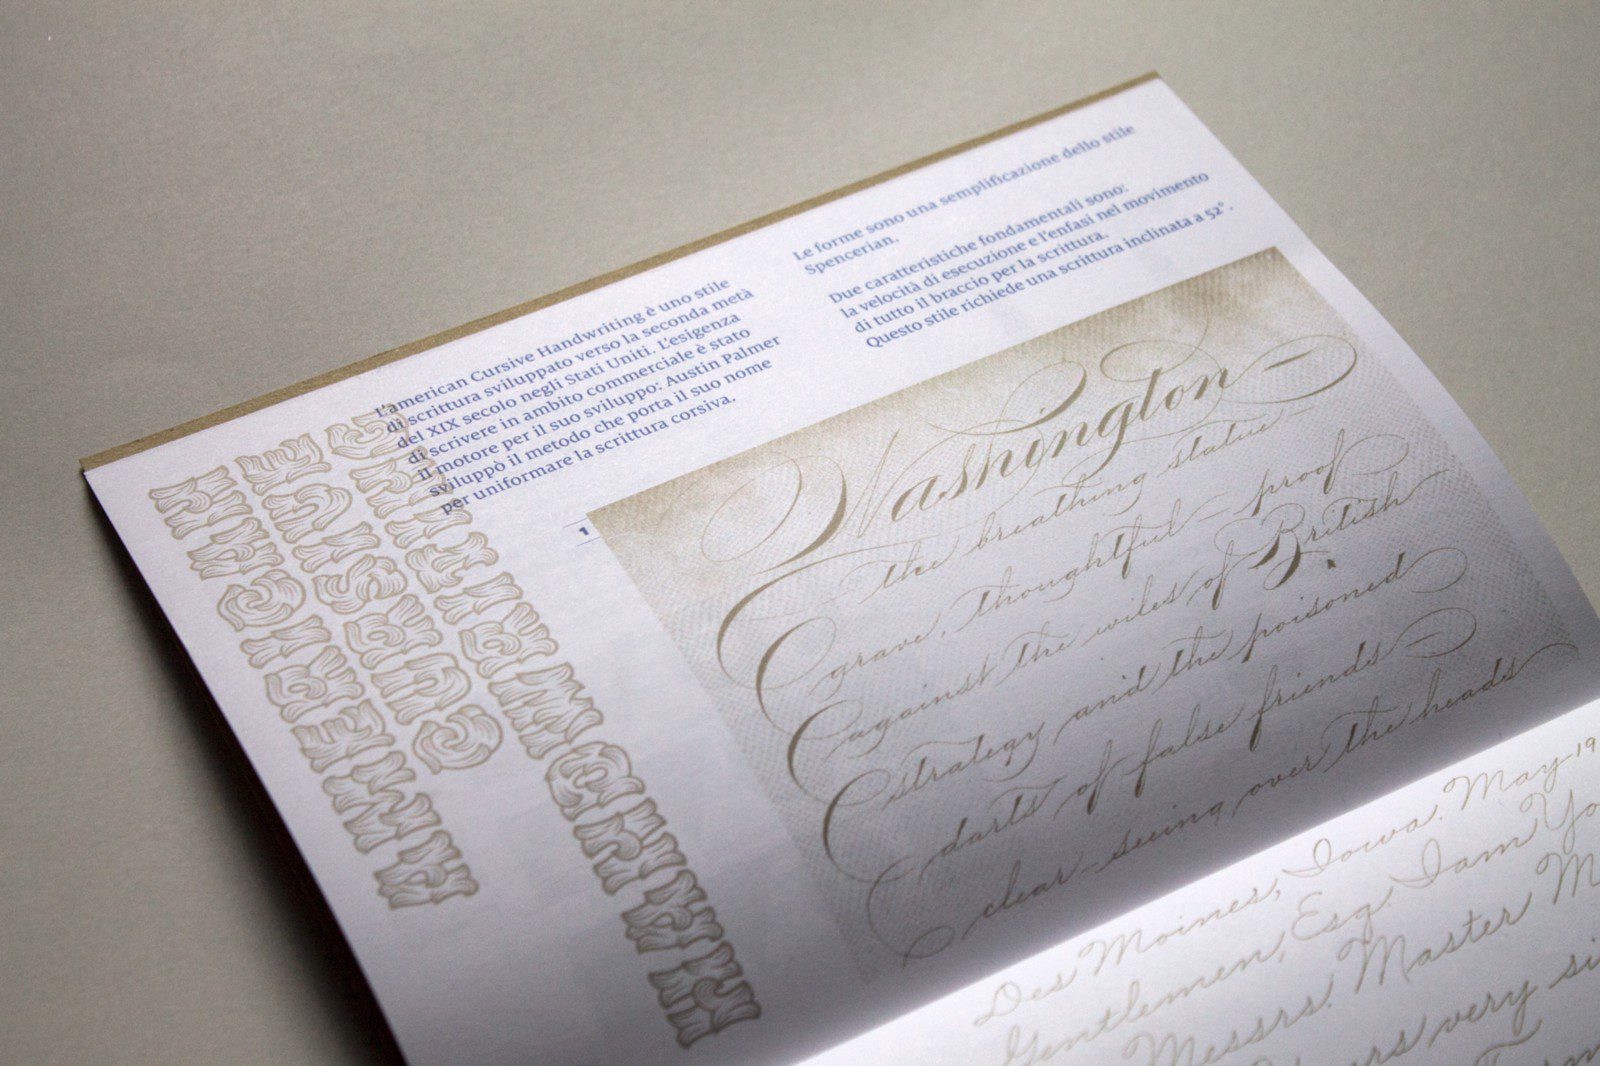 AMERICAN
CURSIVE
HANDWRITING
L'american Cursive Handwriting è uno stile
di scrittura sviluppato verso la seconda metà
del XIX secolo negli Stati Uniti. L'esigenza
di scrivere in ambito commerciale è stato
il motore per il suo sviluppo: Austin Palmer
sviluppò il metodo che porta il suo nome
per uniformare la scrittura corsiva.
Le forme sono una semplificazione dello stile
Spencerian.
Due caratteristiche fondamentali sono:
la velocità di esecuzione e l'enfasi nel movimento
di tutto il braccio per la scrittura.
Questo stile richiede una scrittura inclinata a 52°.
1
Washington
the breathing statue
grave, thoughtful – proof
against the wiles of British
strategy and the poisoned
darts of false friends –
clear-seeing over the heads
Des Moines, Iowa. May 19
Gentlemen, Esq. I am Yo
Messrs. Master M
very si